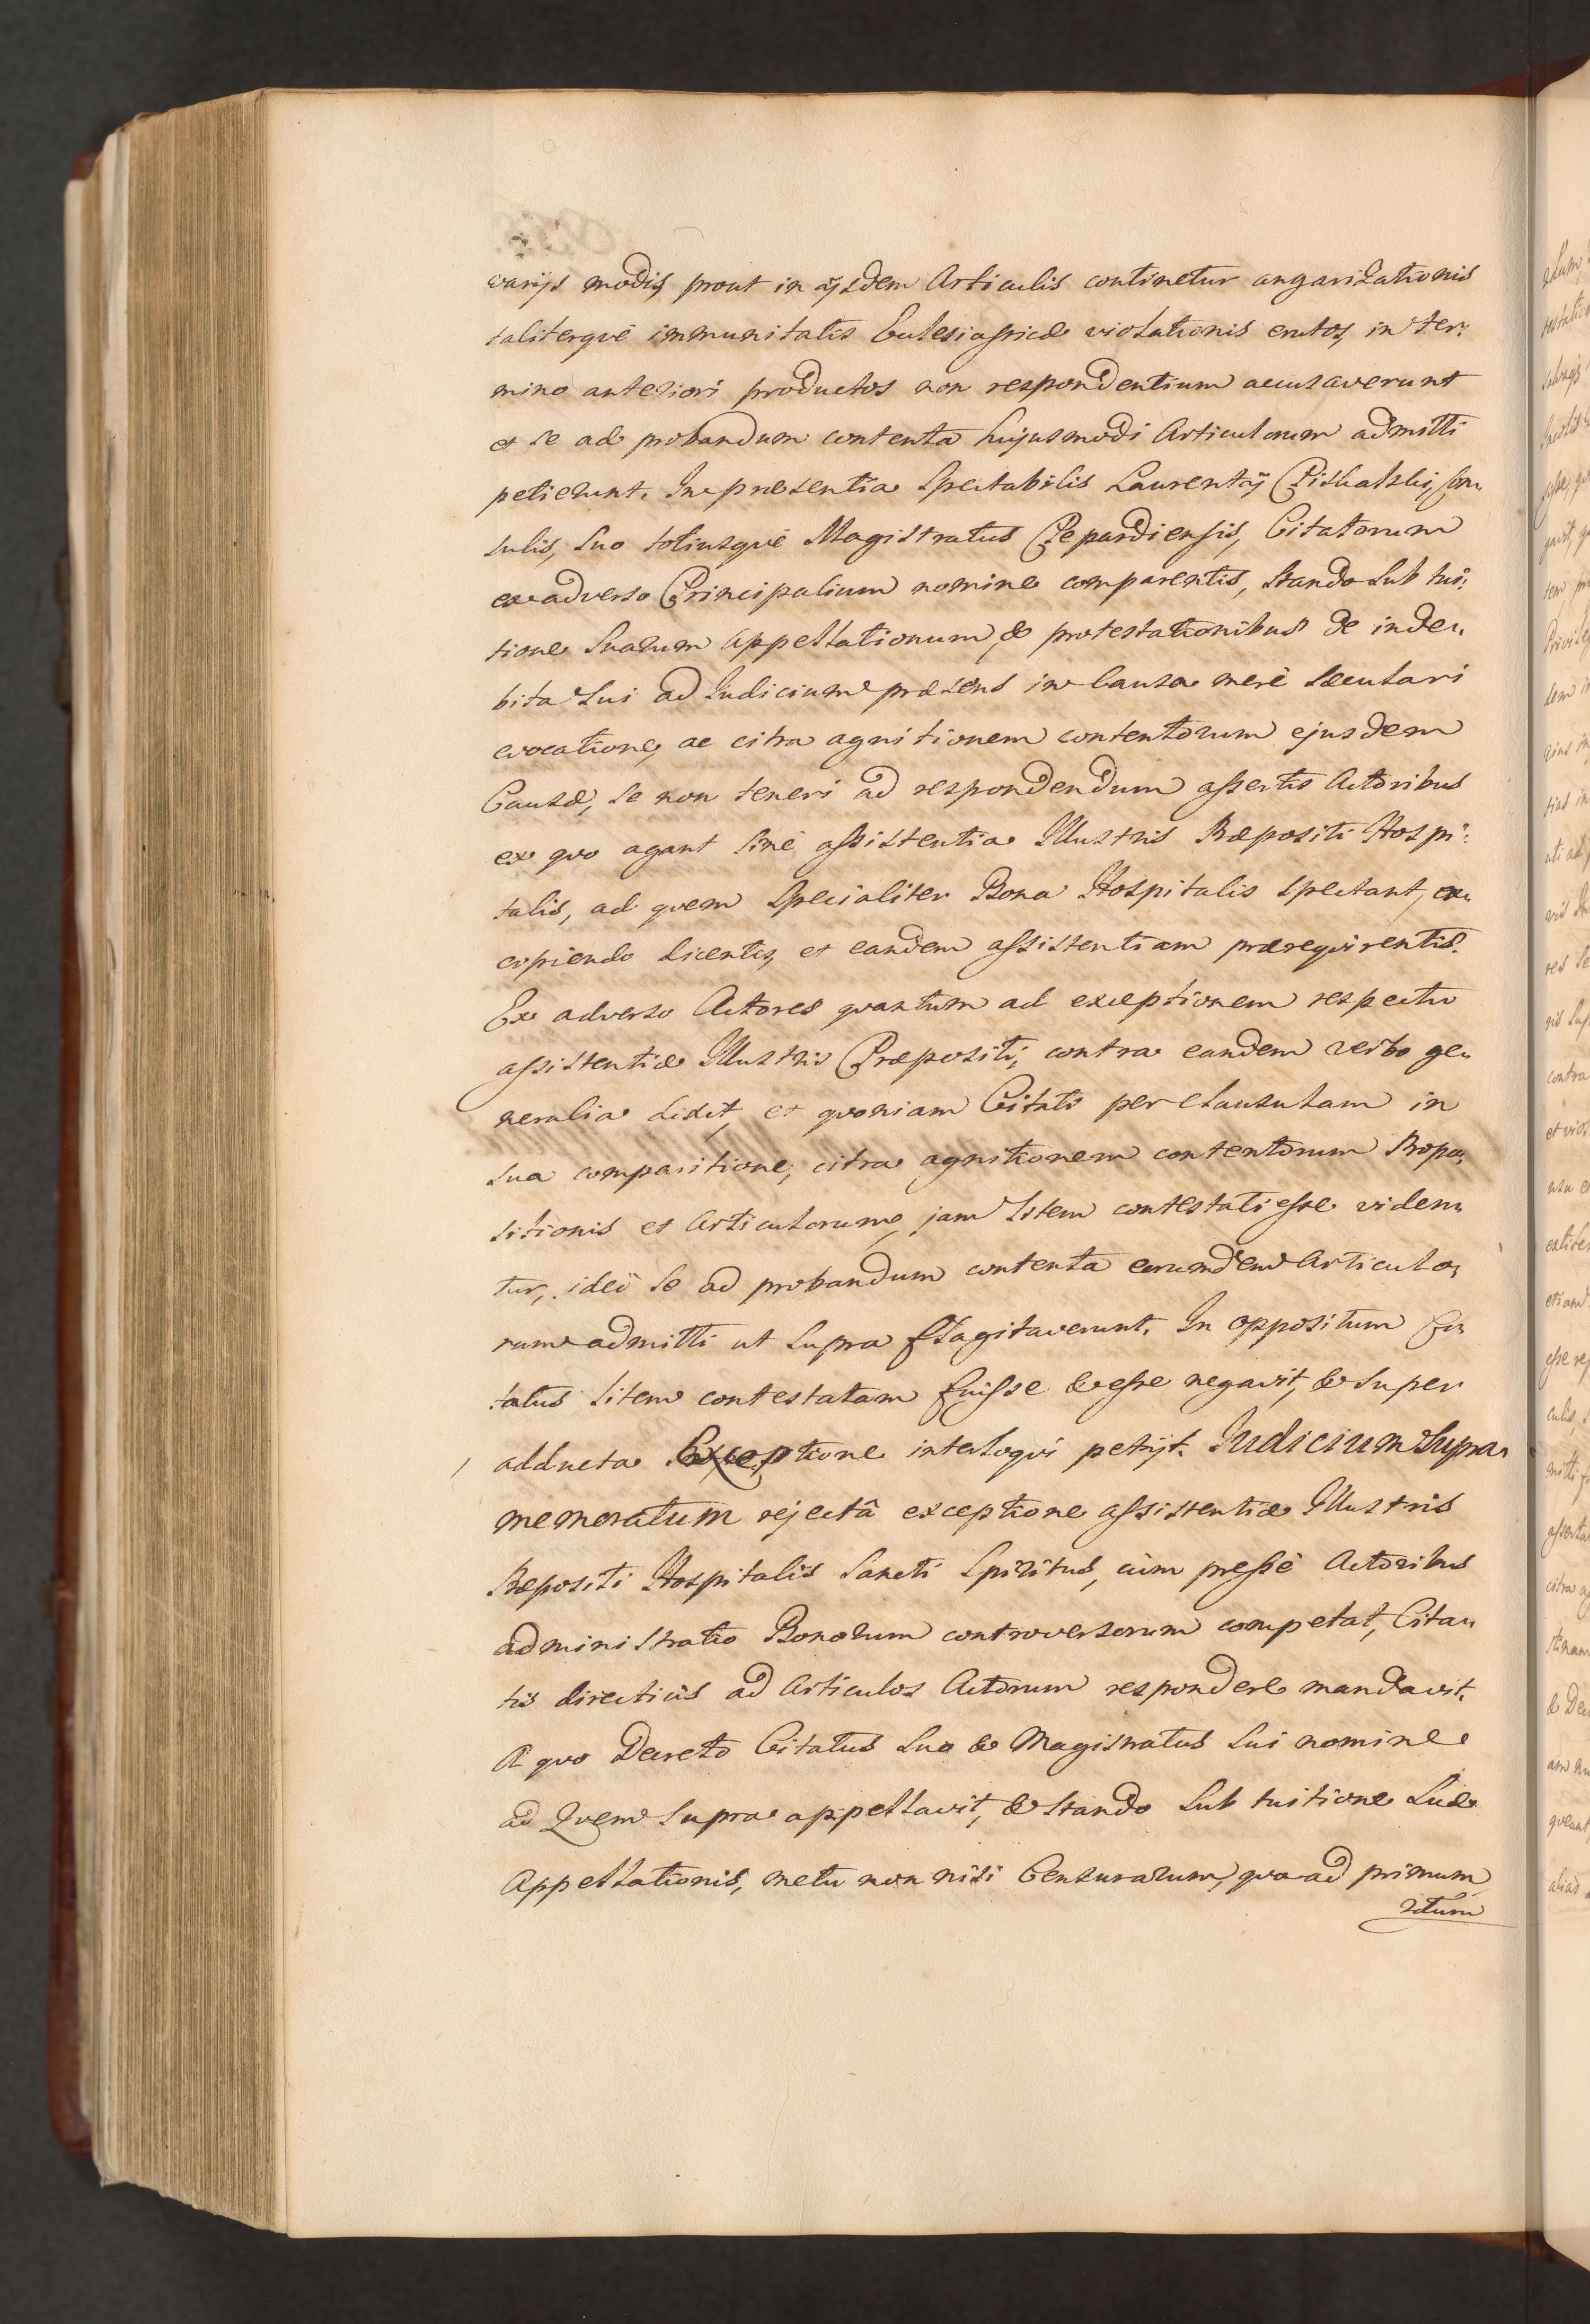 varijs modis, prout in ijsdem Articulis continetur angarizationis
taliterqve immunitatis Ecclesiasticæ violationis erutos, in ter:
mino anteriori productos non respondentium accusaverunt
et se ad probandum contenta hujusmodi Articulorum admitti
petierunt. In præsentia Spectabilis Laurentij Con
sulis, suo totiusqvè Magistratus Clepardiensis, Citatorum
ex adverso Principalium nomine comparentis, stando sub tui:
tione suarum Appellationum, & protestationibus de inde
bita sui ad Iudicium præsens in Causa merè sæculari
evocatione, ac citra agnitionem contentorum ejusdem
Causæ, se non teneri ad respondendum assertis Actoribus
ex qvo agant sinè assistentia Illustris Præpositi Hospi:
talis, ad qvem specialiter Bona Hospitalis spectant, ex
cipiendo dicentis, et eandem assistentiam præreqvirentis.
Ex adverso Actores qvantum ad exceptionem respectu
assistentiæ Illustris Præpositi, contra eandem verbo ge
neralia dixit, et qvoniam Citati per clausulam in
sua comparitione, citra agnitionem contentorum Propo
sitionis et Articulorum, jam litem contestati esse viden
tur, ideò se ad probandum contenta eorumdem Articulo
rum admitti ut supra flagitaverunt. In oppositum Ci
tatus litem contestatam fuisse & esse negavit, & super
adducta Exceptione interloqvi petijt. Iudicium supra
memoratum rejectâ exceptione assistentiæ Illustris
Præpositi Hospitalis Sancti Spiritus, cùm pressè Actoribus
administratio Bonorum controversorum competat, Cita
tis directiùs ad Articulos Actorum respondere mandavit.
A qvo Decreto Citatus suo & Magistratus sui nomine
ad Qvem supra appellavit, & stando sub tuitione suæ
Appellationis, metu non nisi Censurarum, qvo ad primum